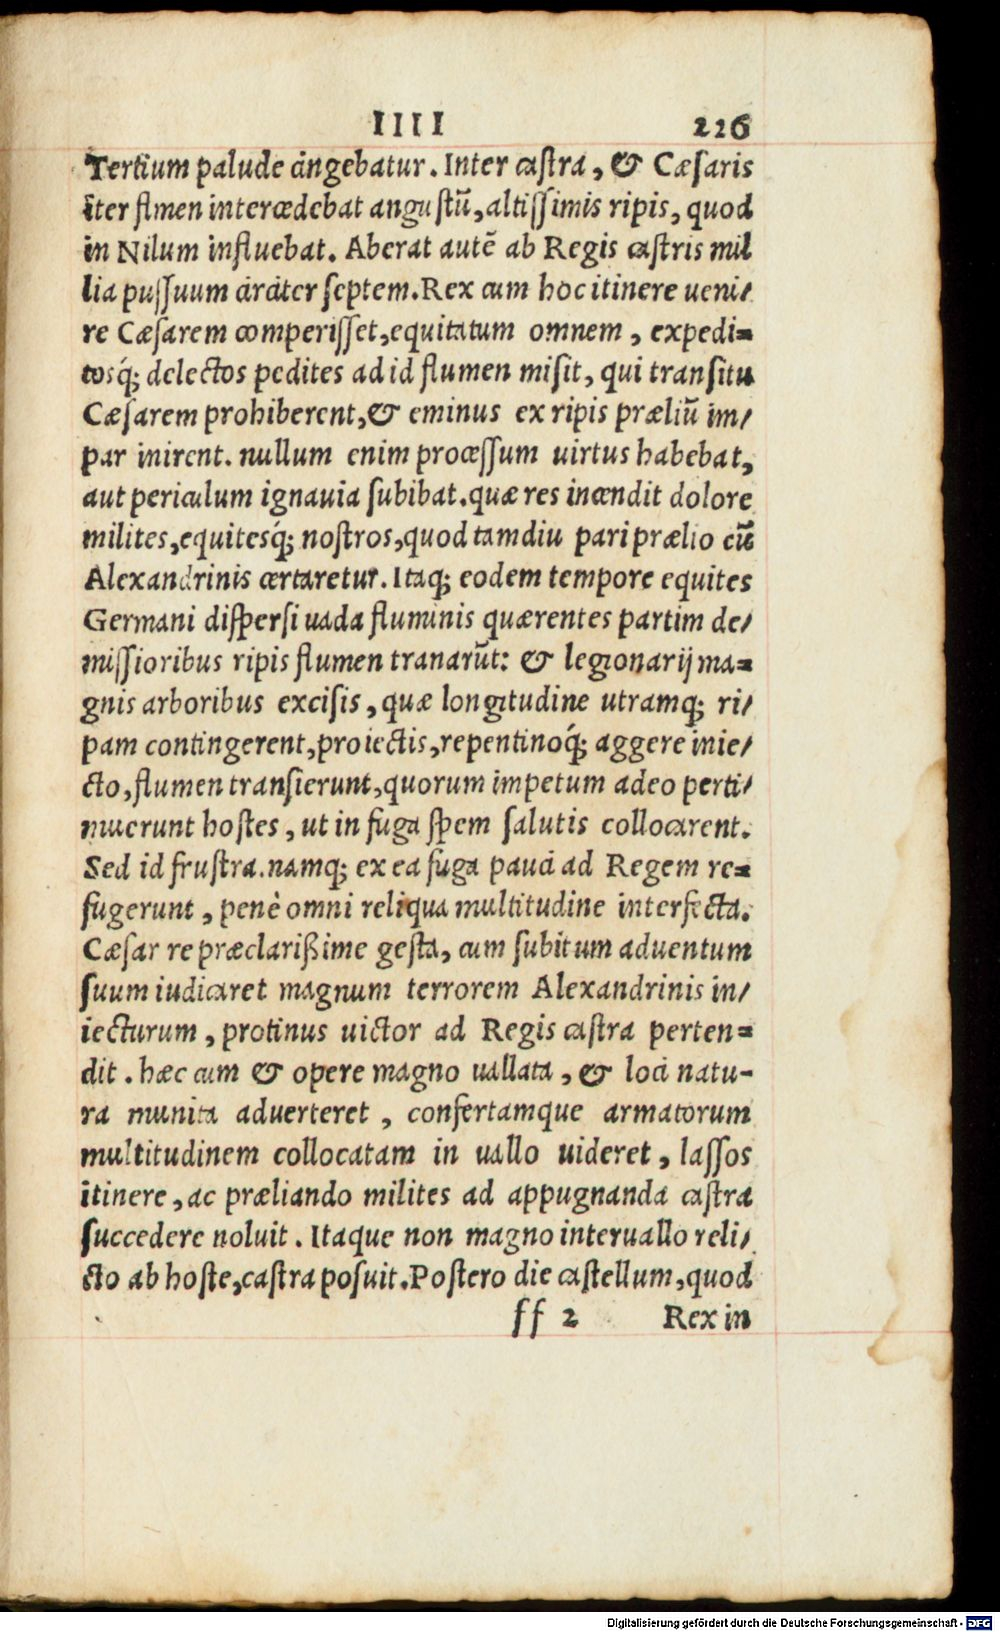 IIII 226
Tertium palude cingebatur. Inter castra, & Cæsaris
iter flmen intercedebat angustũ, altissimis ripis, quod
in Nilum influebat. Aberat autẽ ab Regis castris mil
lia passuum circiter septem. Rex cum hoc itinere ueni/
re Cæsarem comperisset, equitatum omnem, expedi=
tosq́; delectos pedites ad id flumen misit, qui transitu
Cæsarem prohiberent, & eminus ex ripis præliũ im/
par inirent. nullum enim processum uirtus habebat,
aut periculum ignauia subibat. quæ res incendit dolore
milites, equitesq́; nostros, quod tamdiu pari prælio cũ
Alexandrinis certaretur. Itaq; eodem tempore equites
Germani dispersi uada fluminis quærentes partim de/
missioribus ripis flumen tranarũt: & legionarij ma=
gnis arboribus excisis, quæ longitudine utramq; ri/
pam contingerent, proiectis, repentinoq́; aggere inie/
cto, flumen transierunt, quorum impetum adeo perti/
muerunt hostes, ut in fuga spem salutis collocarent.
Sed id frustra. namq; ex ea fuga pauci ad Regem re=
fugerunt, penè omni reliqua multitudine interfecta.
Cæsar re præclarißime gesta, cum subitum aduentum
suum iudicaret magnum terrorem Alexandrinis in/
iecturum, protinus uictor ad Regis castra perten=
dit. hæc cum & opere magno uallata, & loci natu-
ra munita aduerteret, confertamque armatorum
multitudinem collocatam in uallo uideret, lassos
itinere, ac præliando milites ad appugnanda castra
succedere noluit. Itaque non magno interuallo reli/
cto ab hoste, castra posuit. Postero die castellum, quod
ff 2 Rex in
Digitalisierung gefördert durch die Deutsche Forschungsgemeinschaft - DFG